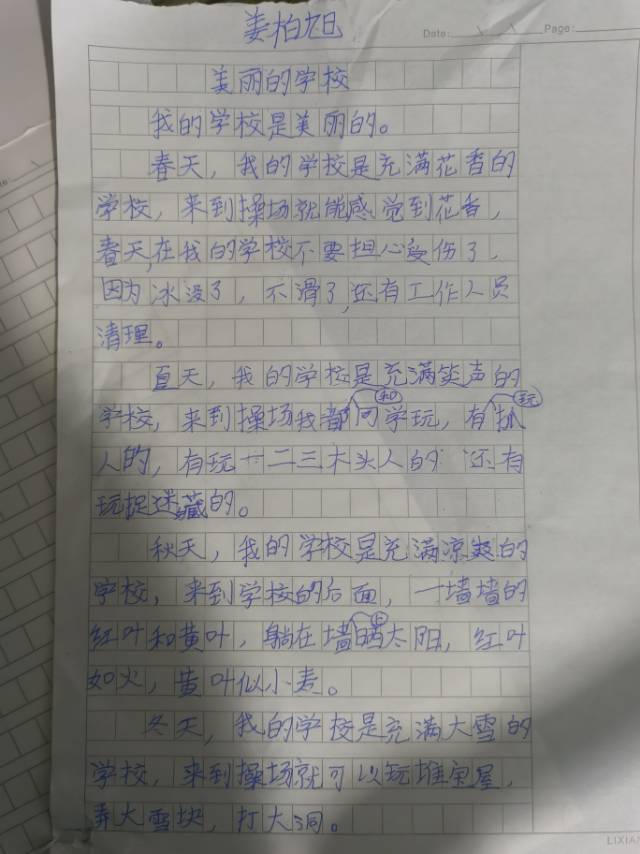 姜柏旭
Date:
Page:
美丽的学校
我的学校是美丽的。
春天，我的学校是充满花香的
学校，来到操场就能感觉到花香，
春天，在我的学校不要担心受伤了，
因为冰没了，不滑了，还有工作人员
清理。
夏天，我的学校是充满笑声的
学校，来到操场我都和同学玩，有玩抓
人的，有玩一二三木头人的 还有
玩捉迷藏的。
秋天，我的学校是充满凉爽的
学校，来到学校的后面，一墙墙的
红叶和黄叶，躺在墙上晒太阳，红叶
如火，黄叶似小麦。
冬天，我的学校是充满大雪的
学校，来到操场就可以玩堆雪屋，
弄大雪块，打大洞。
LIXIA